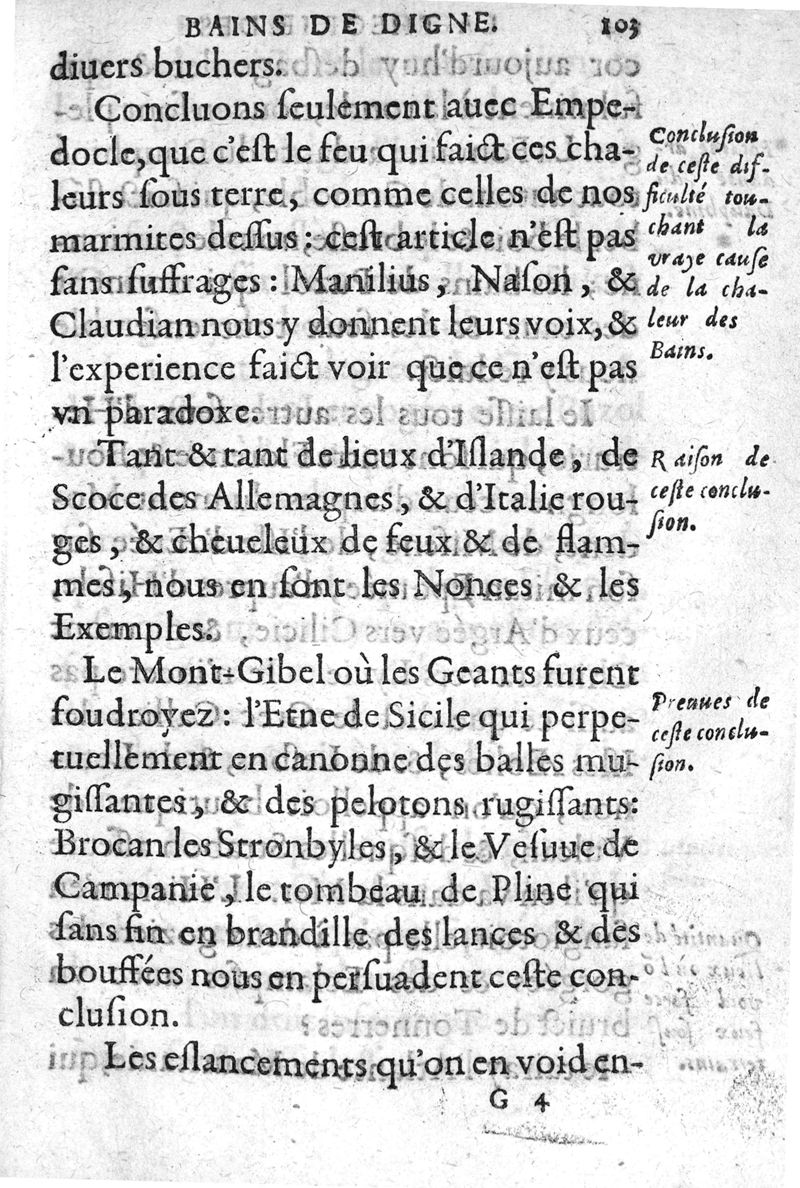 BAINS DE DIGNE. 103
diuers buchers.
Concluons ſeulement auec Empe-
docle, que c'eſt le feu qui faict ces cha-
leurs ſous terre, comme celles de nos
marmites deſſus : ceſt article n'eſt pas
ſans ſuffrages : Manilius, Naſon, &
Claudian nous y donnent leurs voix, &
l'experience faict voir que ce n'eſt pas
vn paradoxe.
Tant & tant de lieux d'Iſlande, de
Scoce des Allemagnes, & d'Italie rou-
ges, & cheueleux de feux & de flam-
mes, nous en ſont les Nonces & les
Exemples.
Le Mont-Gibel où les Geants furent
foudroyez : l'Etne de Sicile qui perpe-
tuellement en canonne des balles mu-
giſſantes, & des pelotons rugiſſants:
Brocan les Stronbyles, & le Veſuue de
Campanie, le tombeau de Pline qui
ſans fin en brandille des lances & des
bouffées nous en perſuadent ceſte con-
cluſion.
Les eſlancements qu'on en void en-
G 4
Concluſion
de ceſte dif-
ficulté tou-
chant la
vraye cauſe
de la cha-
leur des
Bains.
Raiſon de
ceſte conclu-
ſion.
Preuues de
ceſte conclu-
ſion.